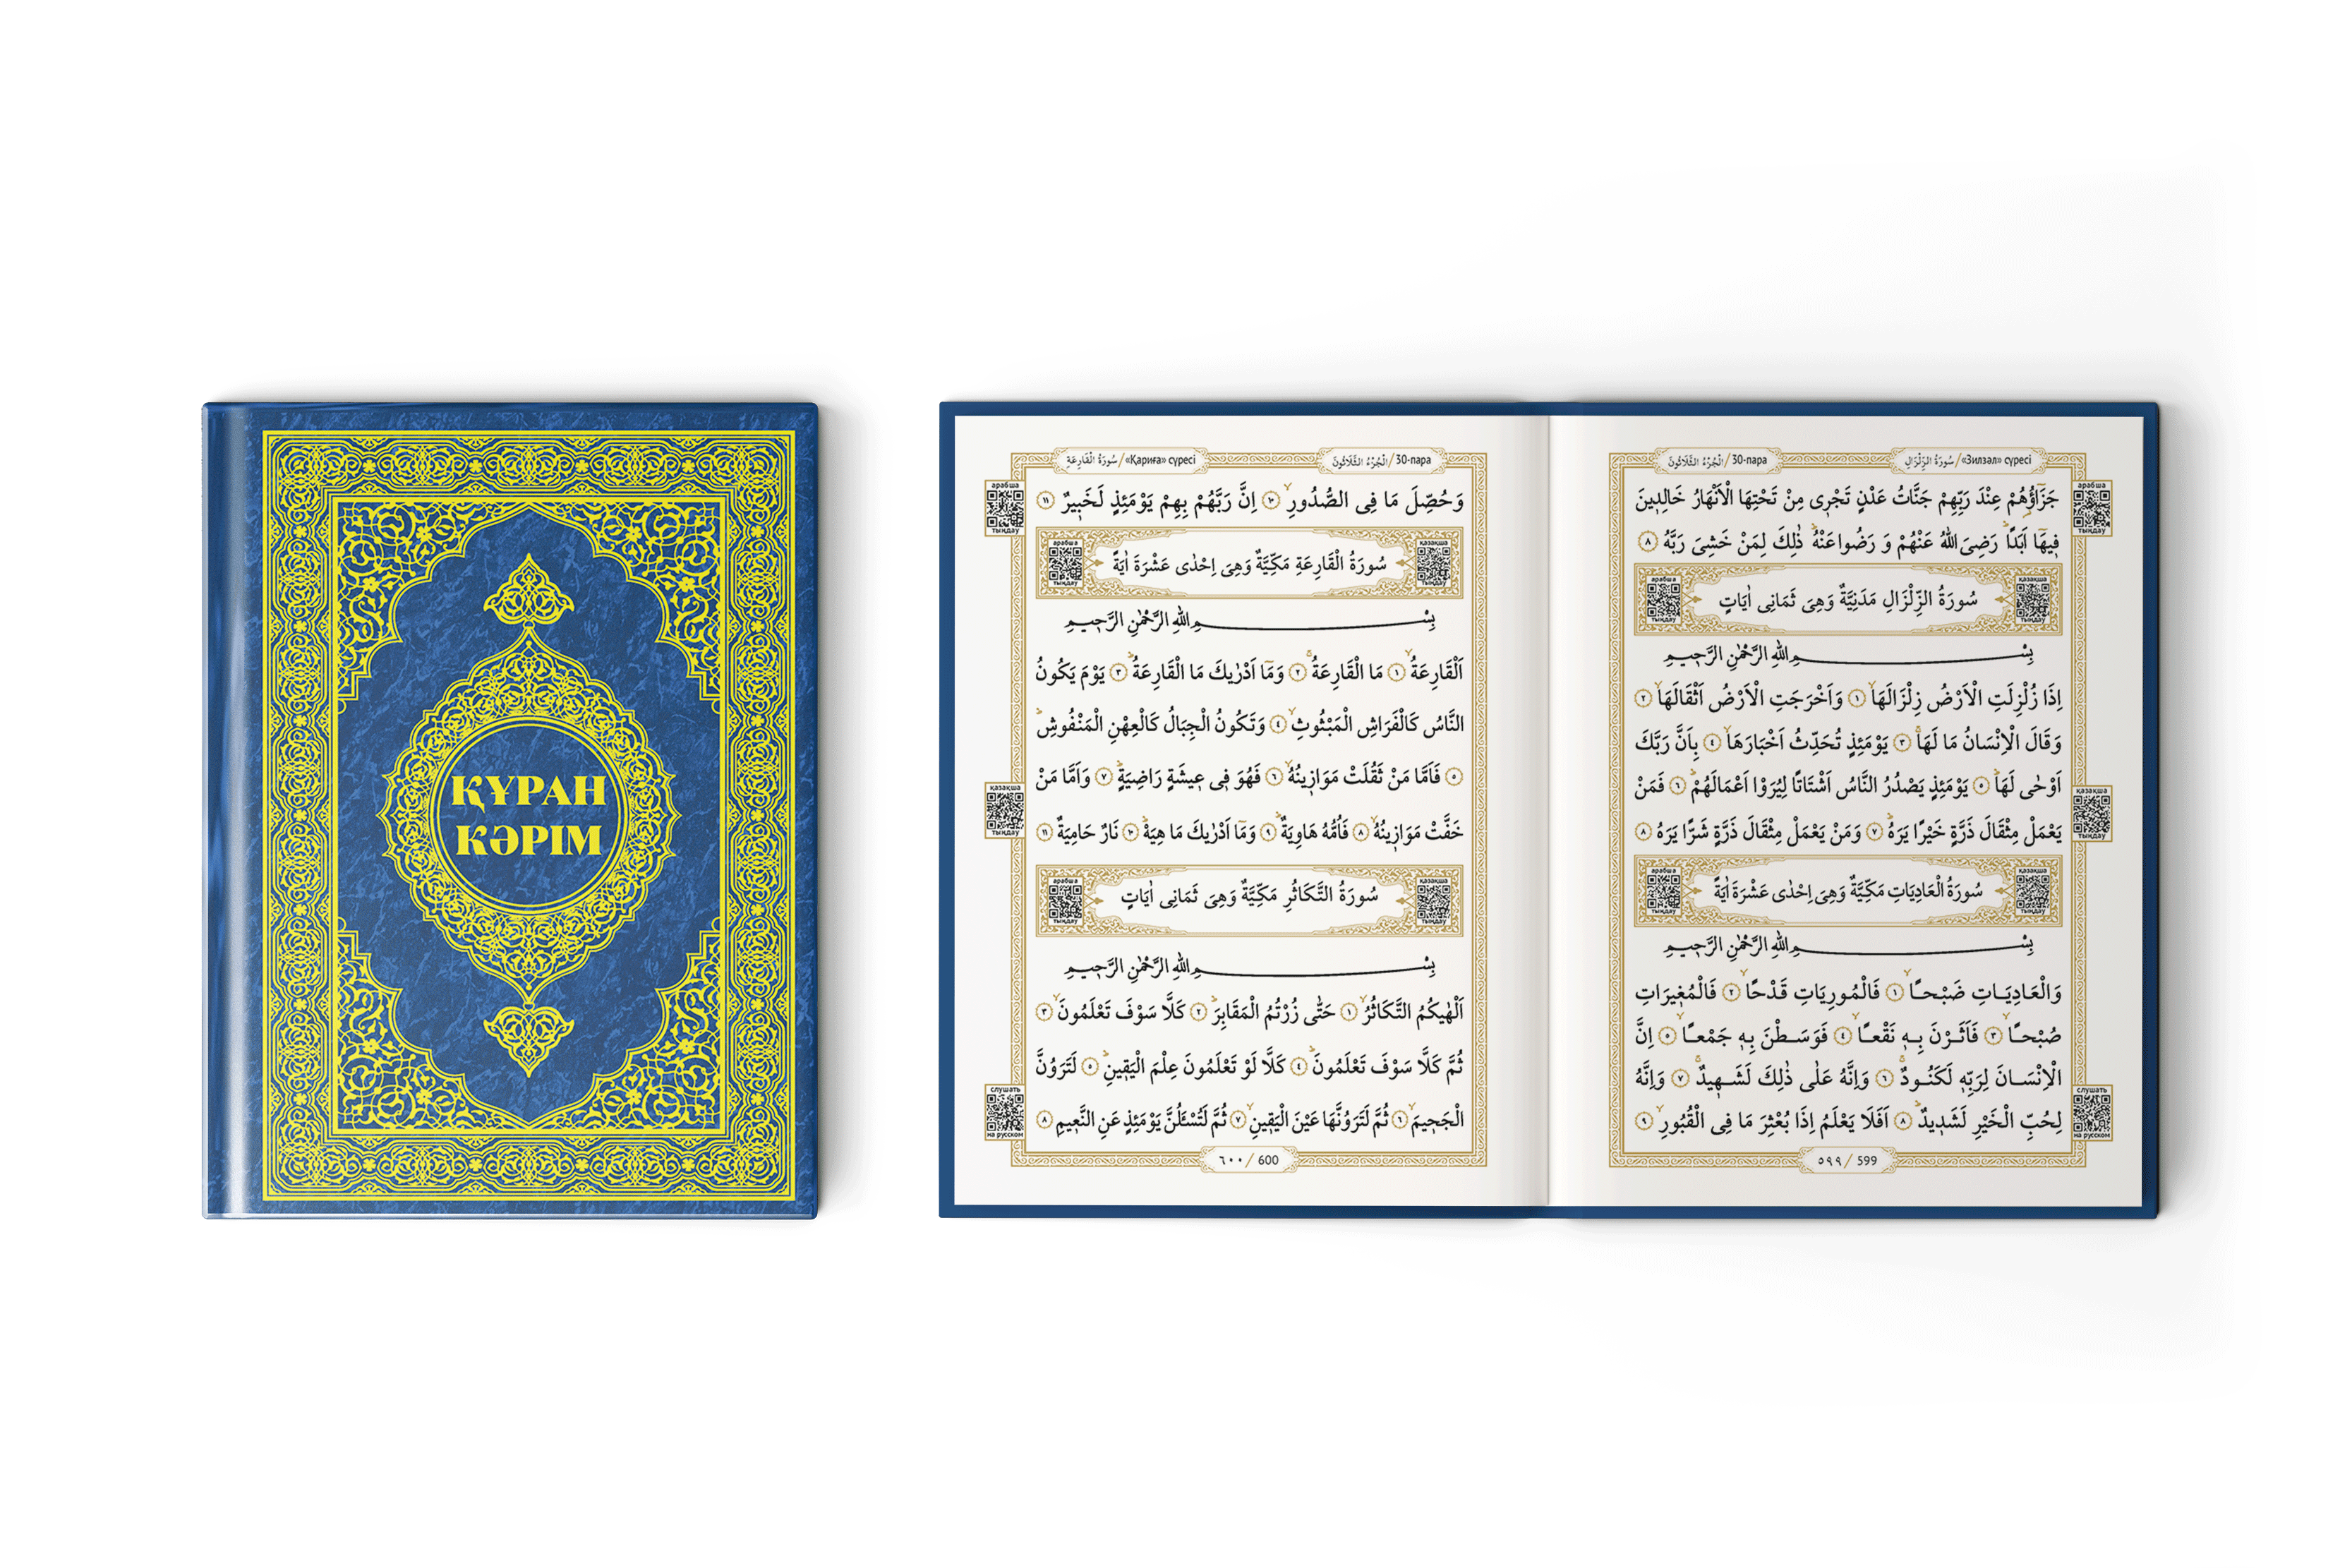 ҚҰРАН
КӘРІМ
سُورَةُ الْقَارِعَةِ / «Қариға» сүресі
اَلْجُزْءُ الثَّلَاثُونَ / 30-пара
арабша
тыңдау
وَحُصِّلَ مَا فِى الصُّدُورِۙ ١٠ اِنَّ رَبَّهُمْ بِهِمْ يَوْمَئِذٍ لَخَب۪يرٌ ١١
арабша
тыңдау
سُورَةُ الْقَارِعَةِ مَكِّيَّةٌ وَهِىَ اِحْدٰى عَشْرَةَ اٰيَةً
қазақша
тыңдау
بِسْمِ اللّٰهِ الرَّحْمٰنِ الرَّح۪يمِ
اَلْقَارِعَةُۙ ١ مَا الْقَارِعَةُۚ ٢ وَمَٓا اَدْرٰيكَ مَا الْقَارِعَةُۜ ٣ يَوْمَ يَكُونُ
النَّاسُ كَالْفَرَاشِ الْمَبْثُوثِۙ ٤ وَتَكُونُ الْجِبَالُ كَالْعِهْنِ الْمَنْفُوشِۜ
٥ فَاَمَّا مَنْ ثَقُلَتْ مَوَاز۪ينُهُۙ ٦ فَهُوَ ف۪ى ع۪يشَةٍ رَاضِيَةٍۜ ٧ وَاَمَّا مَنْ
қазақша
тыңдау
خَفَّتْ مَوَاز۪ينُهُۙ ٨ فَاُمُّهُ هَاوِيَةٌۜ ٩ وَمَٓا اَدْرٰيكَ مَا هِيَهْۜ ١٠ نَارٌ حَامِيَةٌ ١١
арабша
тыңдау
سُورَةُ التَّكَاثُرِ مَكِّيَّةٌ وَهِىَ ثَمَانِى اٰيَاتٍ
қазақша
тыңдау
بِسْمِ اللّٰهِ الرَّحْمٰنِ الرَّح۪يمِ
اَلْهٰيكُمُ التَّكَاثُرُۙ ١ حَتّٰى زُرْتُمُ الْمَقَابِرَۜ ٢ كَلَّا سَوْفَ تَعْلَمُونَۙ ٣
ثُمَّ كَلَّا سَوْفَ تَعْلَمُونَۜ ٤ كَلَّا لَوْ تَعْلَمُونَ عِلْمَ الْيَق۪ينِۜ ٥ لَتَرَوُنَّ
слушать
на русском
الْجَح۪يمَۙ ٦ ثُمَّ لَتَرَوُنَّهَا عَيْنَ الْيَق۪ينِۙ ٧ ثُمَّ لَتُسْـَٔلُنَّ يَوْمَئِذٍ عَنِ النَّع۪يمِ ٨
٦٠٠ / 600
اَلْجُزْءُ الثَّلَاثُونَ / 30-пара
سُورَةُ الزِّلْزَالِ / «Зилзәл» сүресі
арабша
тыңдау
جَزَٓاؤُ۬هُمْ عِنْدَ رَبِّهِمْ جَنَّاتُ عَدْنٍ تَجْر۪ى مِنْ تَحْتِهَا الْاَنْهَارُ خَالِد۪ينَ
ف۪يهَٓا اَبَدًاۜ رَضِىَ اللّٰهُ عَنْهُمْ وَ رَضُوا عَنْهُۜ ذٰلِكَ لِمَنْ خَشِىَ رَبَّهُ ٨
арабша
тыңдау
سُورَةُ الزِّلْزَالِ مَدَنِيَّةٌ وَهِىَ ثَمَانِى اٰيَاتٍ
қазақша
тыңдау
بِسْمِ اللّٰهِ الرَّحْمٰنِ الرَّح۪يمِ
اِذَا زُلْزِلَتِ الْاَرْضُ زِلْزَالَهَاۙ ١ وَاَخْرَجَتِ الْاَرْضُ اَثْقَالَهَاۙ ٢
وَقَالَ الْاِنْسَانُ مَا لَهَاۚ ٣ يَوْمَئِذٍ تُحَدِّثُ اَخْبَارَهَاۙ ٤ بِاَنَّ رَبَّكَ
اَوْحٰى لَهَاۜ ٥ يَوْمَئِذٍ يَصْدُرُ النَّاسُ اَشْتَاتًا لِيُرَوْا اَعْمَالَهُمْۜ ٦ فَمَنْ
қазақша
тыңдау
يَعْمَلْ مِثْقَالَ ذَرَّةٍ خَيْرًا يَرَهُۜ ٧ وَمَنْ يَعْمَلْ مِثْقَالَ ذَرَّةٍ شَرًّا يَرَهُ ٨
арабша
тыңдау
سُورَةُ الْعَادِيَاتِ مَكِّيَّةٌ وَهِىَ اِحْدٰى عَشْرَةَ اٰيَةً
қазақша
тыңдау
بِسْمِ اللّٰهِ الرَّحْمٰنِ الرَّح۪يمِ
وَالْعَادِيَاتِ ضَبْحًاۙ ١ فَالْمُورِيَاتِ قَدْحًاۙ ٢ فَالْمُغ۪يرَاتِ
صُبْحًاۙ ٣ فَاَثَرْنَ بِه۪ نَقْعًاۙ ٤ فَوَسَطْنَ بِه۪ جَمْعًاۙ ٥ اِنَّ
الْاِنْسَانَ لِرَبِّه۪ لَكَنُودٌۚ ٦ وَاِنَّهُ عَلٰى ذٰلِكَ لَشَه۪يدٌۚ ٧ وَاِنَّهُ
слушать
на русском
لِحُبِّ الْخَيْرِ لَشَد۪يدٌۜ ٨ اَفَلَا يَعْلَمُ اِذَا بُعْثِرَ مَا فِى الْقُبُورِۙ ٩
٥٩٩ / 599